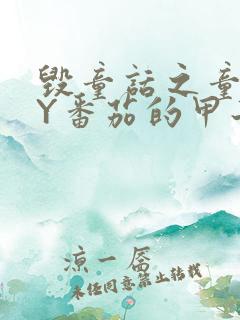 毁童话之童
Y番茄的甲
凉一孱
未经同意禁止转载